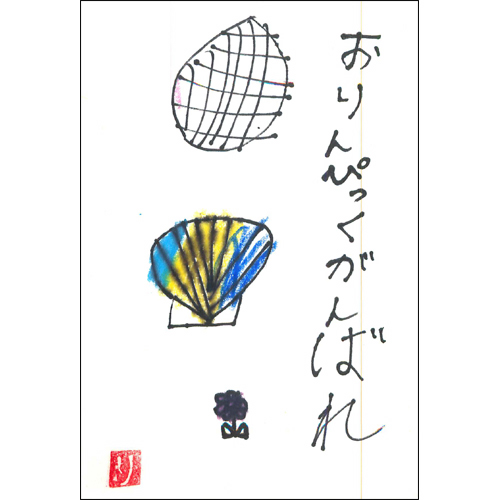 おりんぴっくがんばれ
り